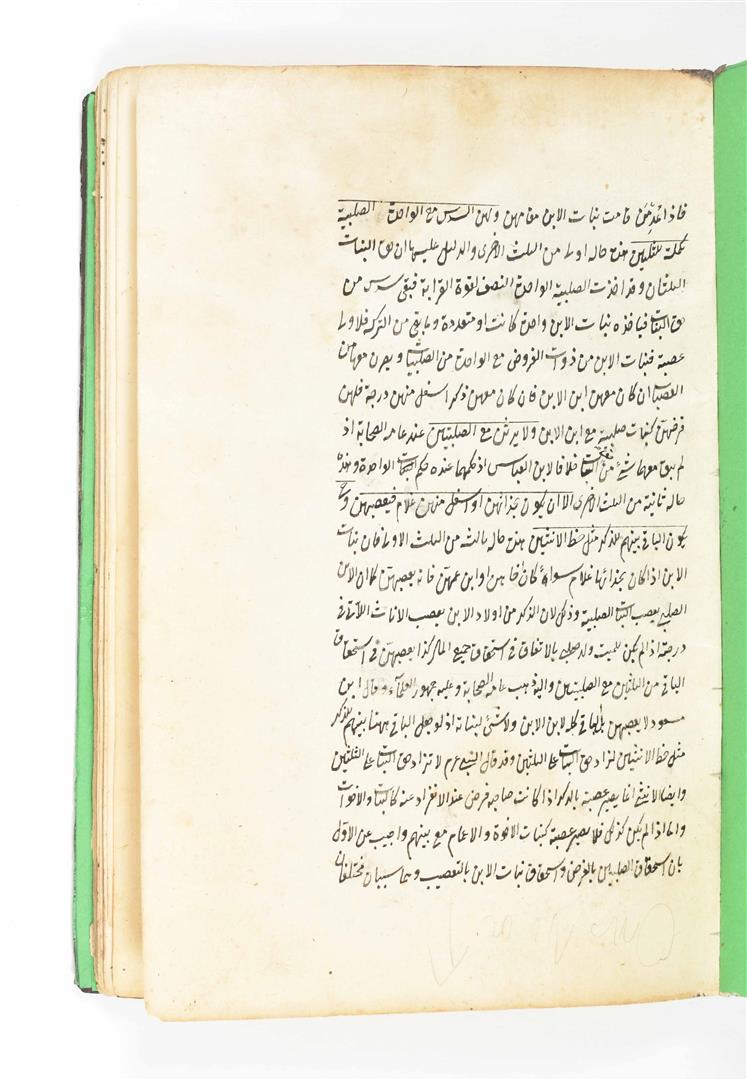 فاذا عدمن قامت بنات الابن مقامهن ولهن السدس مع الواحدة الصلبية
تكملة للثلثين هذه حالة اولى من الثلث الاخرى والدليل عليها ان حق البنات
الثلثان وقد اخذت الصلبية الواحدة النصف لقوة القرابة فبقى سدس من
حق البنات فياخذه بنات الابن واحدة كانت او متعددة وما بقى من التركة فلاولى
عصبة فبنات الابن من ذوات الفروض مع الواحدة من الصلبيات ويصرن معها من
العصبات ان كان معهن ابن الابن فان كان معهن ذكر اسفل منهن درجة فلهن
فرضهن كبنات صلبية مع ابن الابن ولا يرثن مع الصلبيتين عند عامة الصحابة اذ
لم يبق معهما شئ من حق البنات خلافا لابن العباس اذ حكمهما عنده حكم البنات الواحدة وهذه
حالة ثانية من الثلث الاخرى الا ان يكون بحذائهن او اسفل منهن غلام فيعصبهن وح
يكون الباقى بينهم للذكر مثل حظ الانثيين هذه حالة ثالثة من الثلث الاولى فان بنات
الابن اذا كان بحذائها غلام سواء كان اخاهن او ابن عمهن فانه يعصبهن كما ان الابن
الصلبى يعصب البنات الصلبية وذلك لان الذكر من اولاد الابن يعصب الاناث اللاتى فى
درجته اذا لم يكن للميت ولد صلبى بالاتفاق فى استحقاق جميع المال كذا يعصبهن فى استحقاق
الباقى من الثلثين مع الصلبيتين واليه ذهب عامة الصحابة وعليه جمهور العلماء وقال ابن
مسعود لا يعصبهن بل الباقى كله لابن الابن ولا شئ لبناته اذ لو جعل الباقى ههنا بينهم للذكر
مثل حظ الانثيين لزاد حق البنات على الثلثين وقد قال النبى عم لا تزاد حق البنات على الثلثين
وايضا الانثى انما يصير عصبة بالذكر اذا كانت صاحبة فرض عند الانفراد عنه كالبنات والاخوات
واما اذا لم يكن كذلك فلا يصير عصبة كبنات الاخوة والاعمام مع بنيهم واجيب عن الاول
بان استحقاق الصلبيتين بالفرض واستحقاق بنات الابن بالتعصيب وهما سببان مختلفان